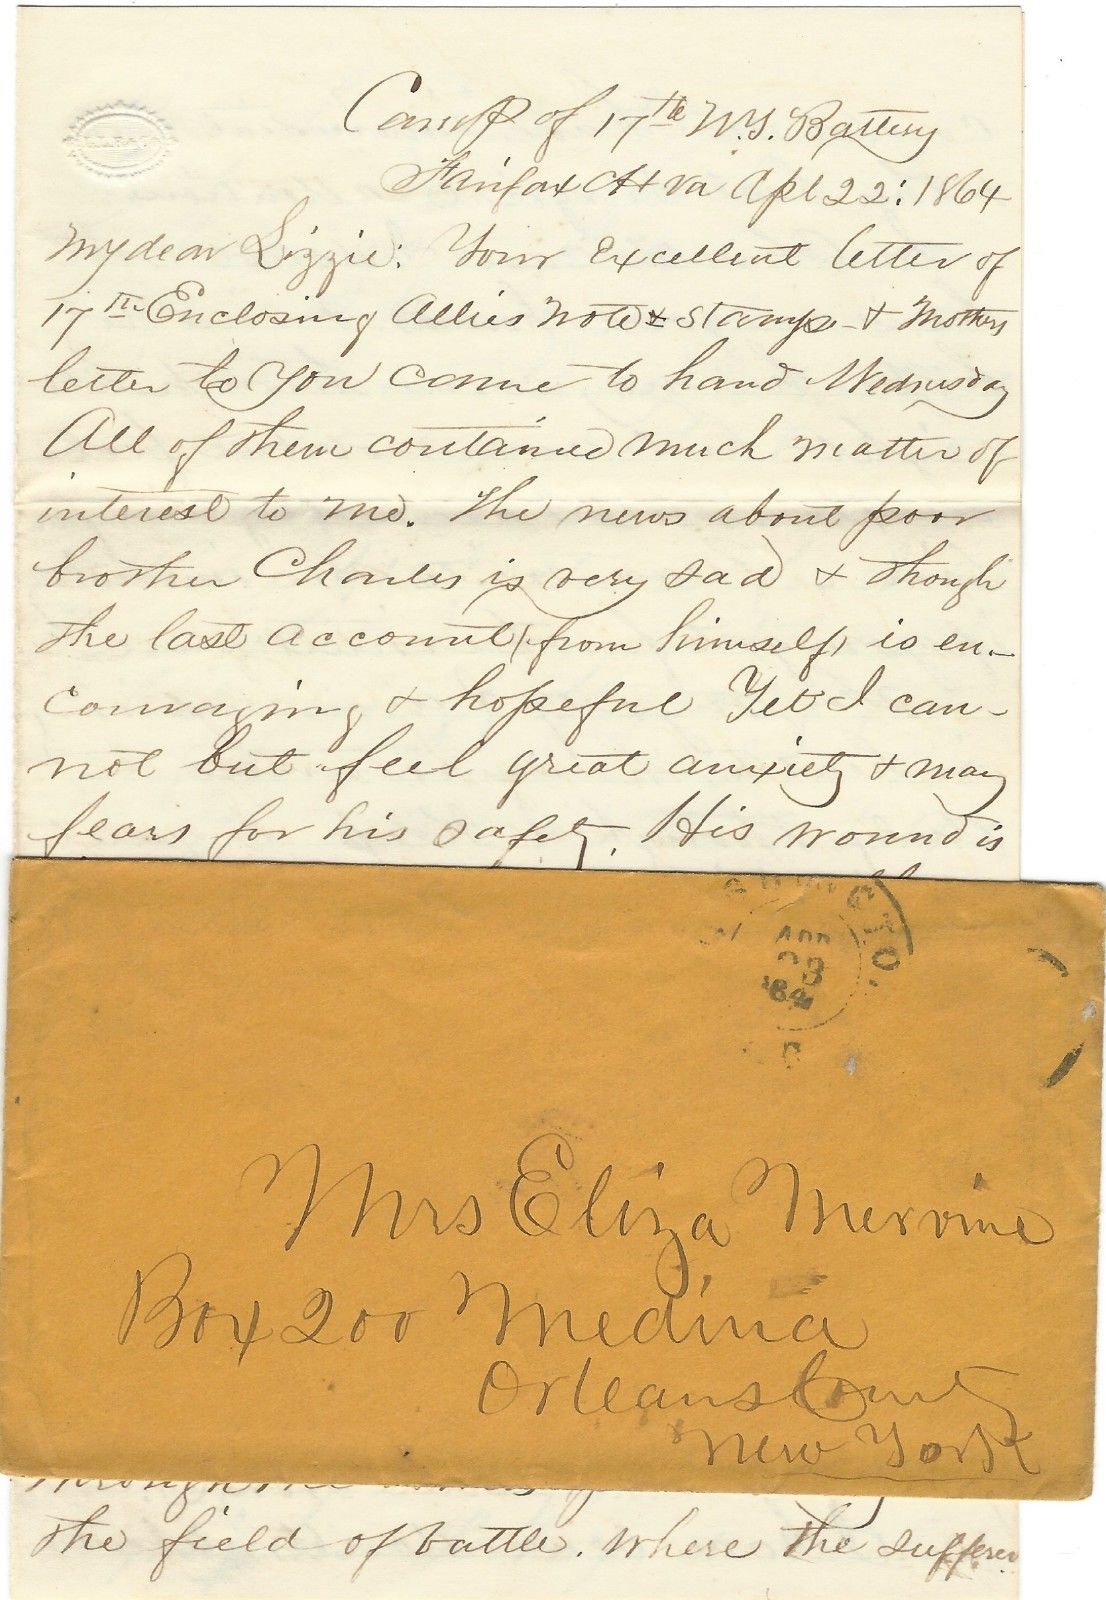 Camp of 17th N.Y. Battery
Fairfax CH Va Apl 22: 1864
My dear Lizzie: Your excellent letter of
17th Enclosing Allies Note & Stamps & Mothers
letter to You came to hand Wednesday
All of them contained much matter of
interest to me. The news about poor
brother Charles is very sad & though
the last account (from himself) is en-
couraging & hopeful Yet I can-
not but feel great anxiety & many
fears for his safety. His wound is
APR
23
'64
Mrs Eliza Mervine
Box 200 Medina
Orleans County
New York
through the
the field of battle. Where the sufferer